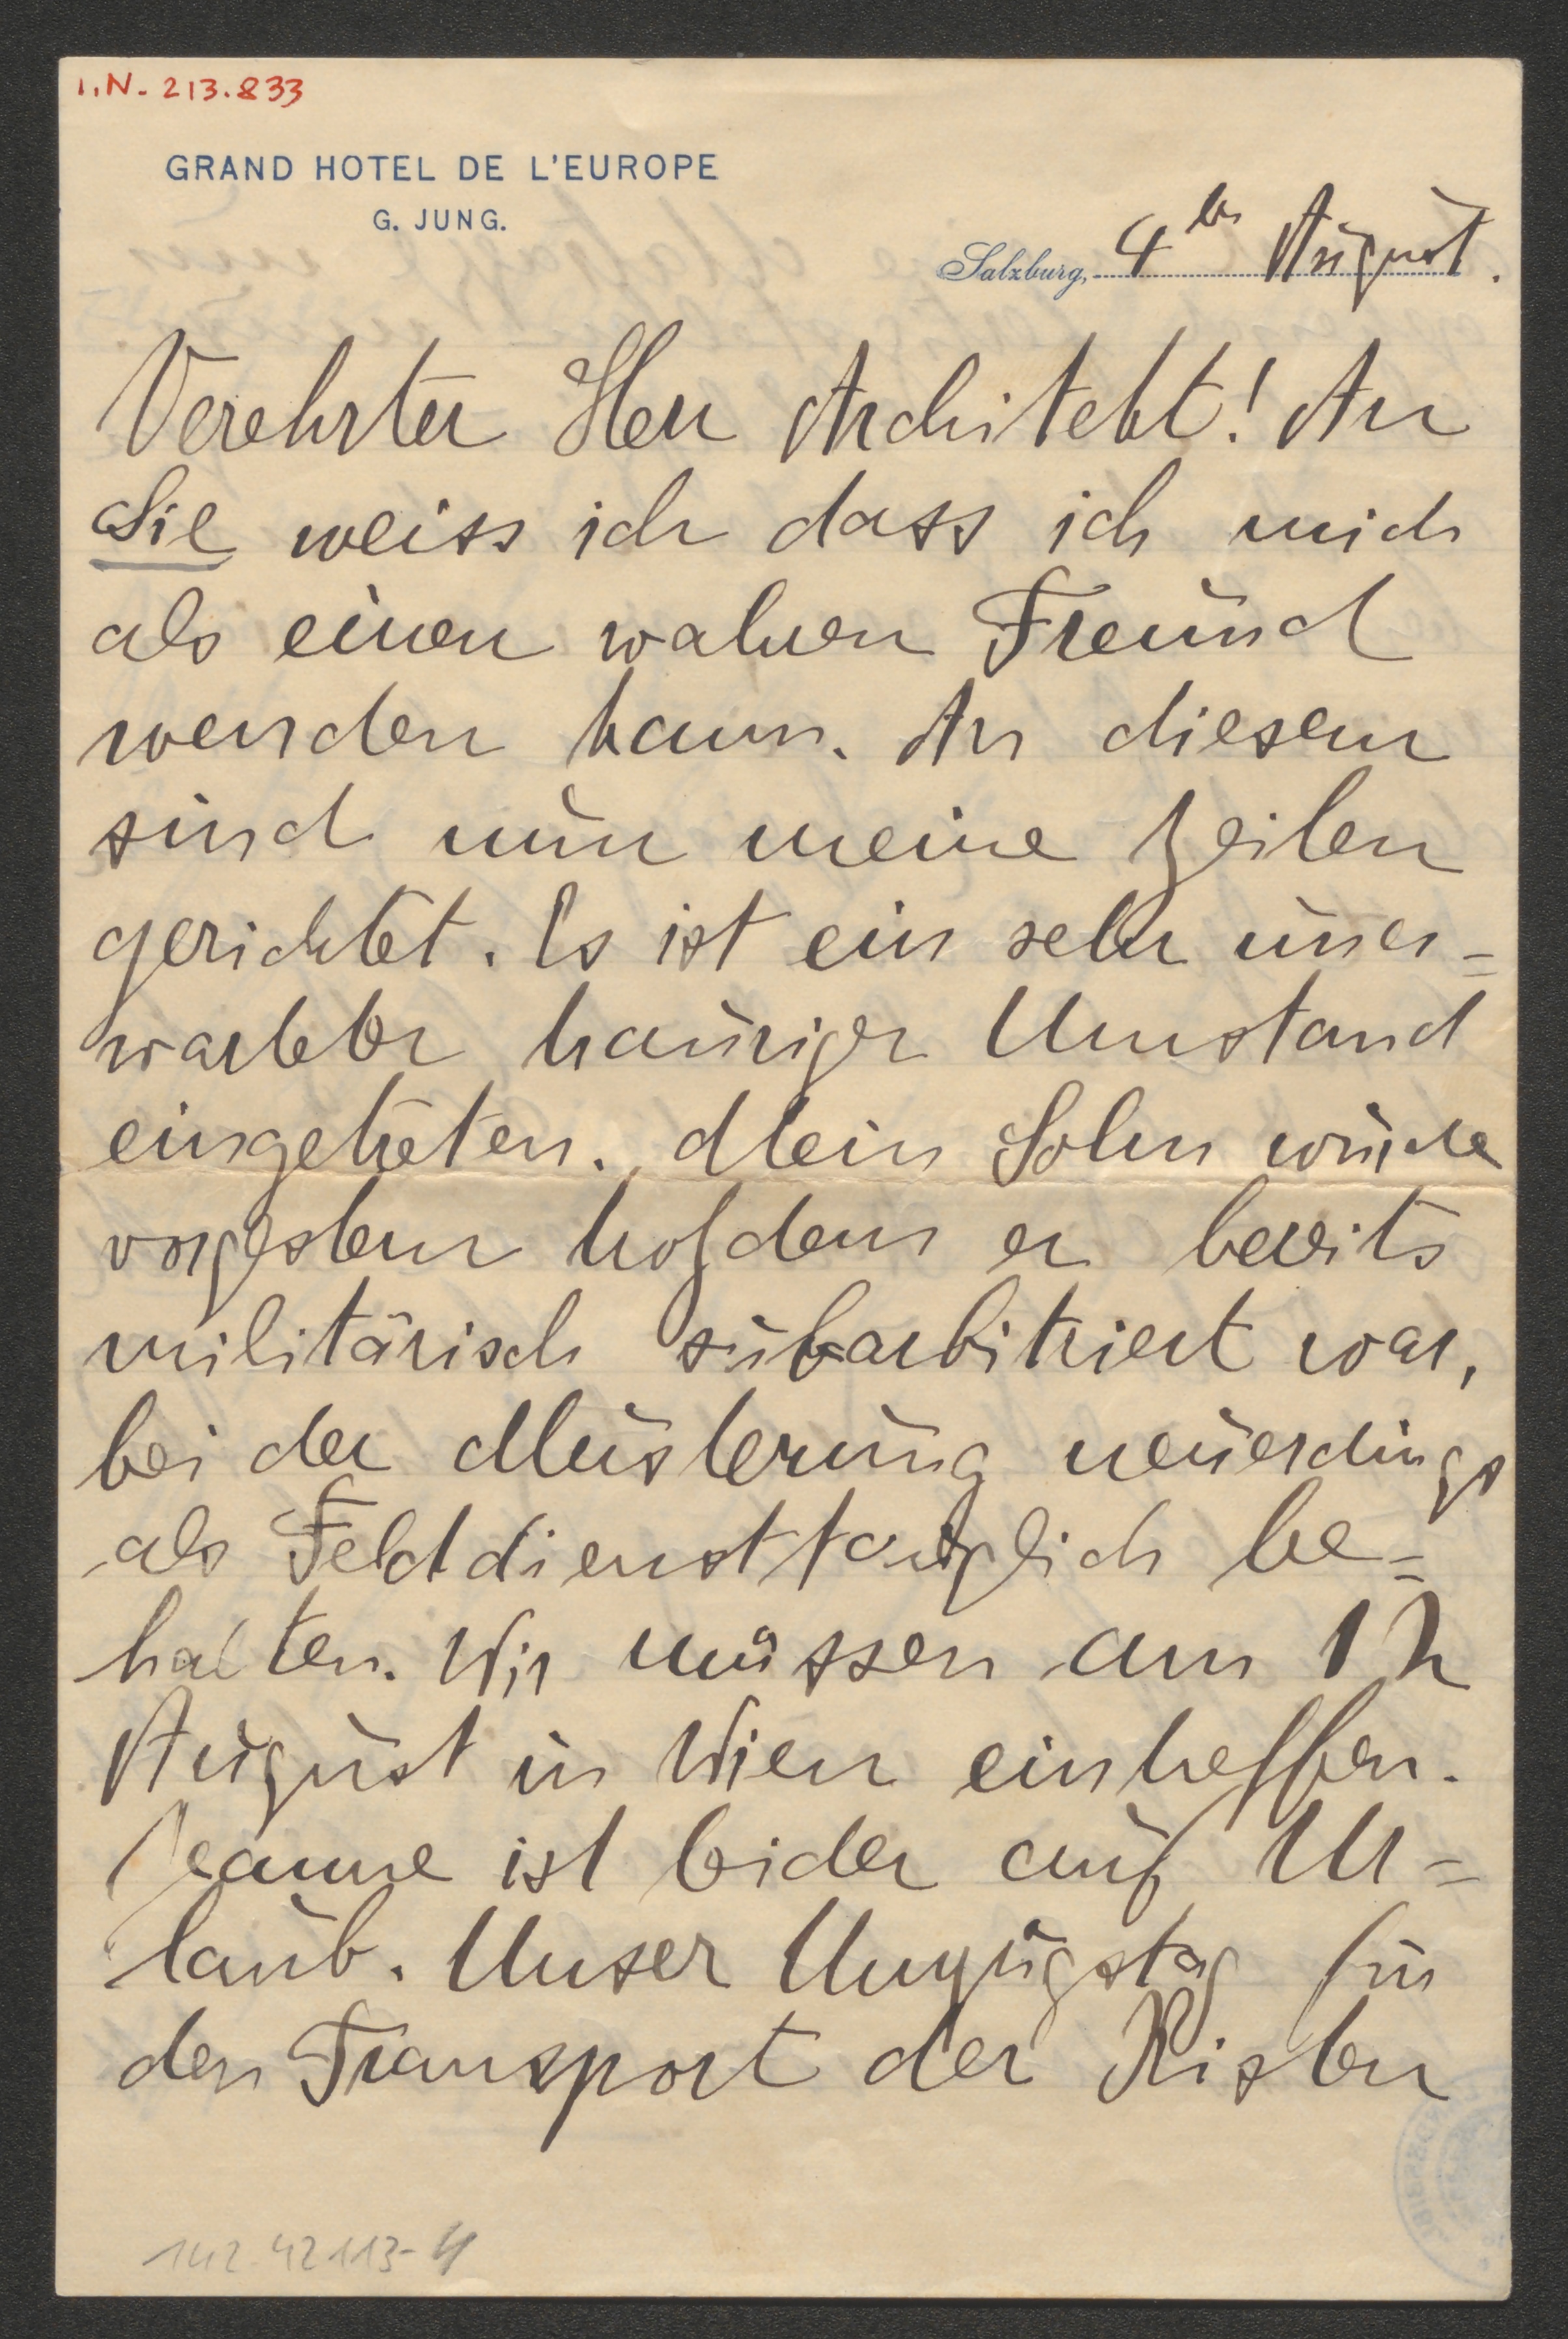 I.N. 213.833
GRAND HOTEL DE L'EUROPE
G. JUNG.
Salzburg, 4ten August.
Verehrter Herr Architekt! An
Sie weiss ich dass ich mich
als einen wahren Freund
wenden kann. An diesem
sind nun meine Zeilen
gerichtet. Es ist ein sehr uner=
warteter trauriger Umstand
eingetreten. Mein Sohn wurde
vorgestern trotzdem er bereits
militärisch subarbitriert war,
bei der Musterung neuerdings
als Felddiensttauglich be=
halten. Wir müssen am 12
August in Wien eintreffen.
Jeanne ist leider auf Ur=
laub. Unser Umzugstag für
den Transport der Kisten
142.42113-4